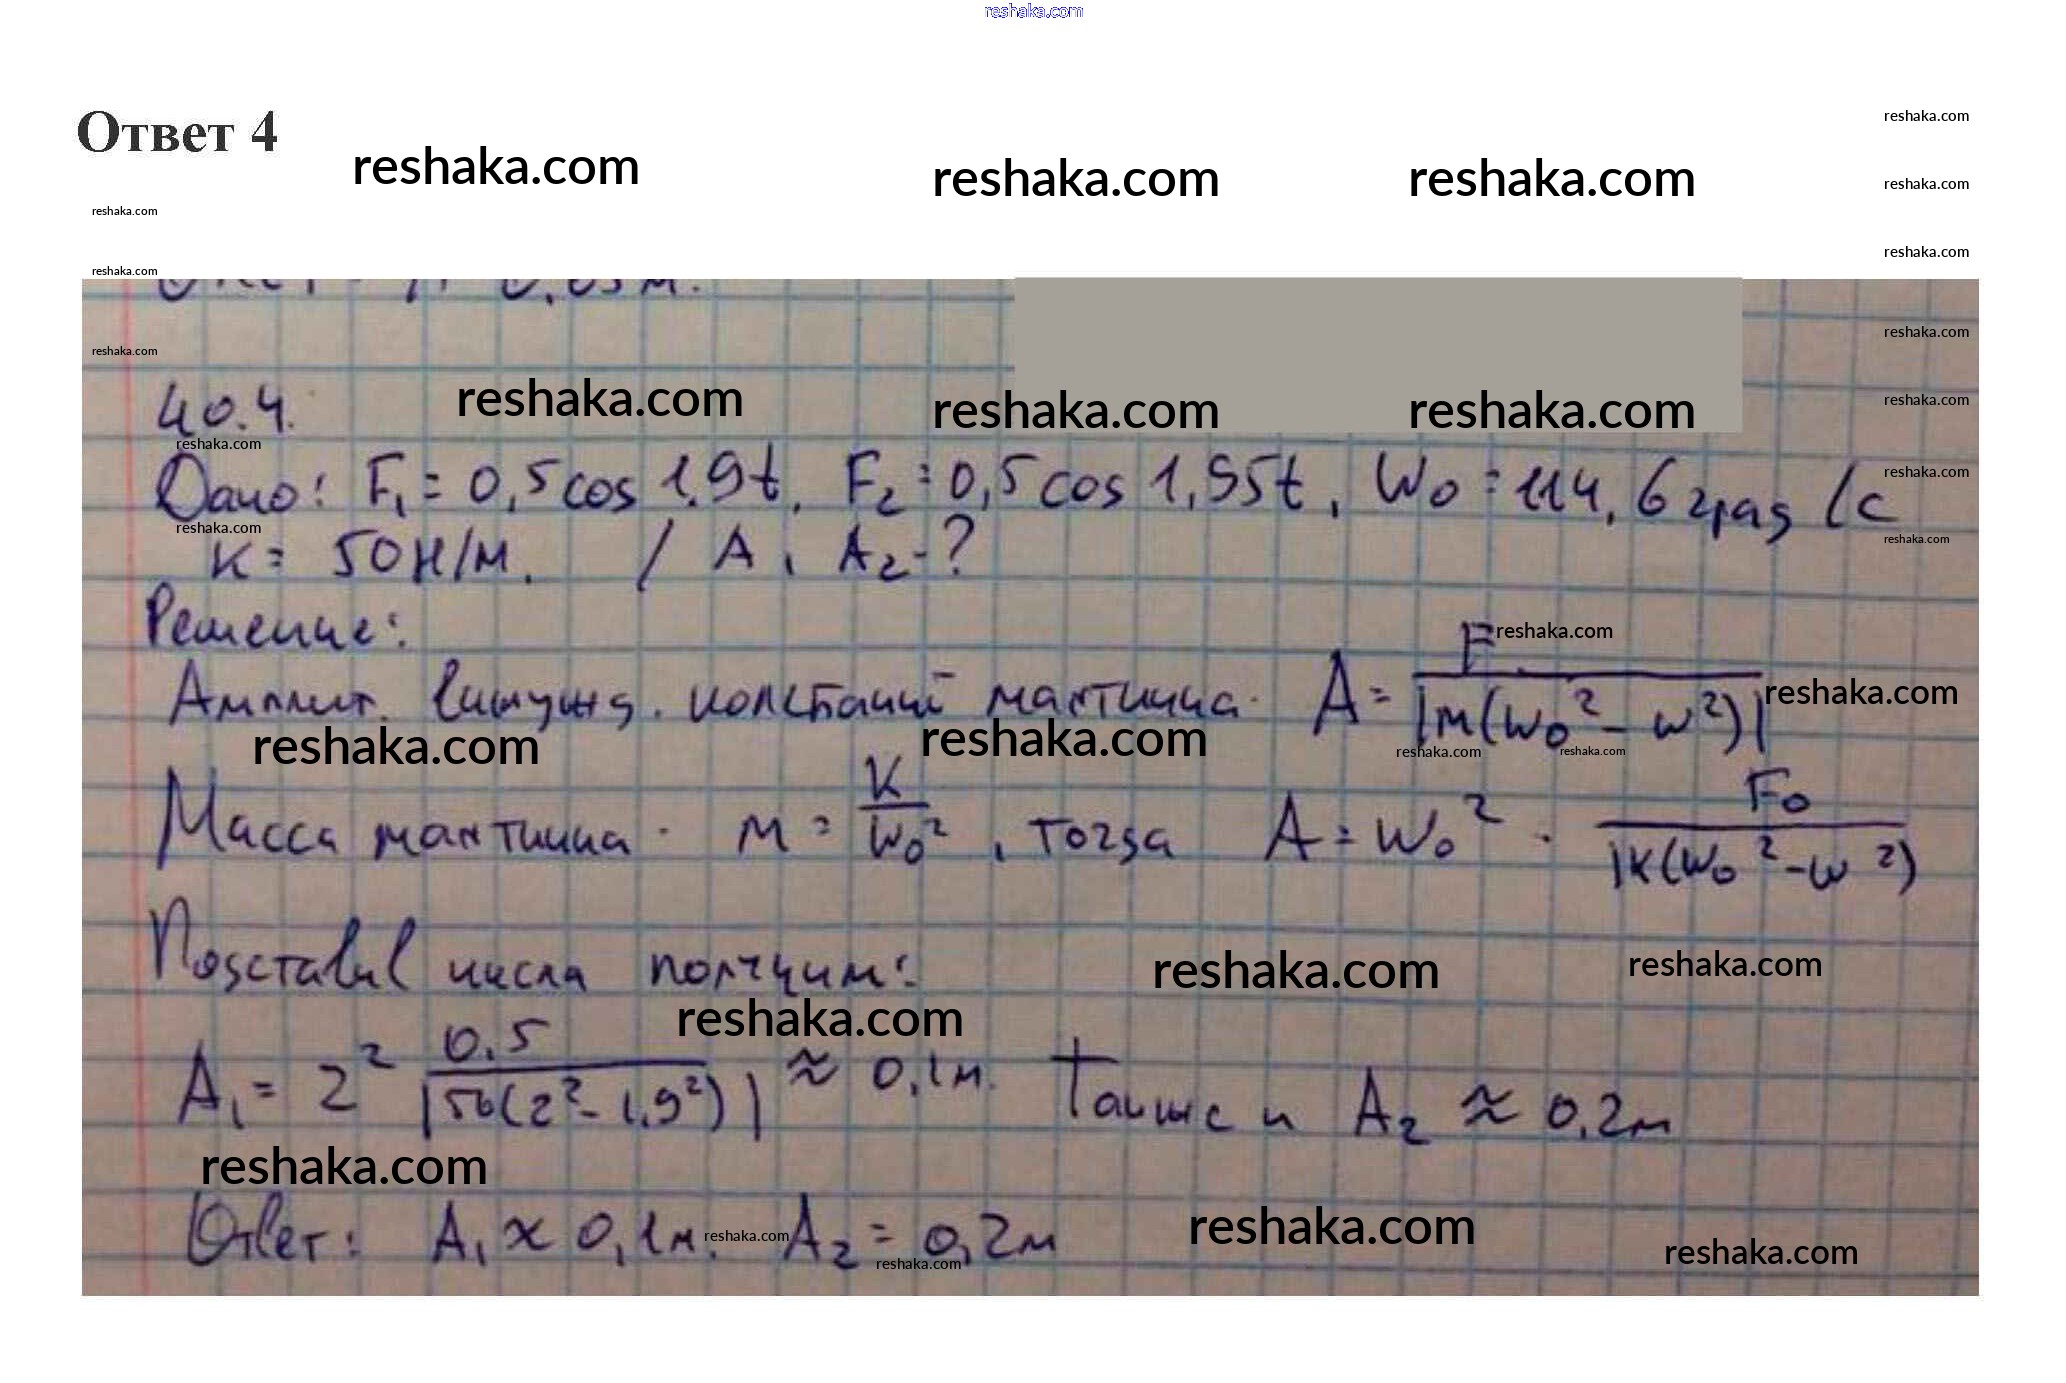 reshaka.com
Ответ 4
reshaka.com
reshaka.com reshaka.com reshaka.com reshaka.com
reshaka.com
reshaka.com
reshaka.com
reshaka.com
reshaka.com
reshaka.com
40.4. reshaka.com reshaka.com reshaka.com reshaka.com
reshaka.com
Дано: F₁ = 0,5 cos 1,9t, F₂ = 0,5 cos 1,95t, W₀ = 114,6 град/с
reshaka.com
reshaka.com
K = 50 Н/м. / A, A₂ - ?
reshaka.com
Решение:
reshaka.com
Амплит. вынужд. колебаний маятника. A = F / |м(W₀² - W²)|
reshaka.com
reshaka.com reshaka.com reshaka.com reshaka.com
Масса маятника. м = K / W₀², тогда A = W₀² · F₀ / |K(W₀² - W²)
Подставив числа получим:
reshaka.com reshaka.com
reshaka.com
A₁ = 2² 0.5 / |50(2² - 1,9²)| ≈ 0,1м. Также и A₂ ≈ 0,2м
reshaka.com
Ответ: A₁ ≈ 0,1м. A₂ = 0,2м
reshaka.com reshaka.com reshaka.com
reshaka.com